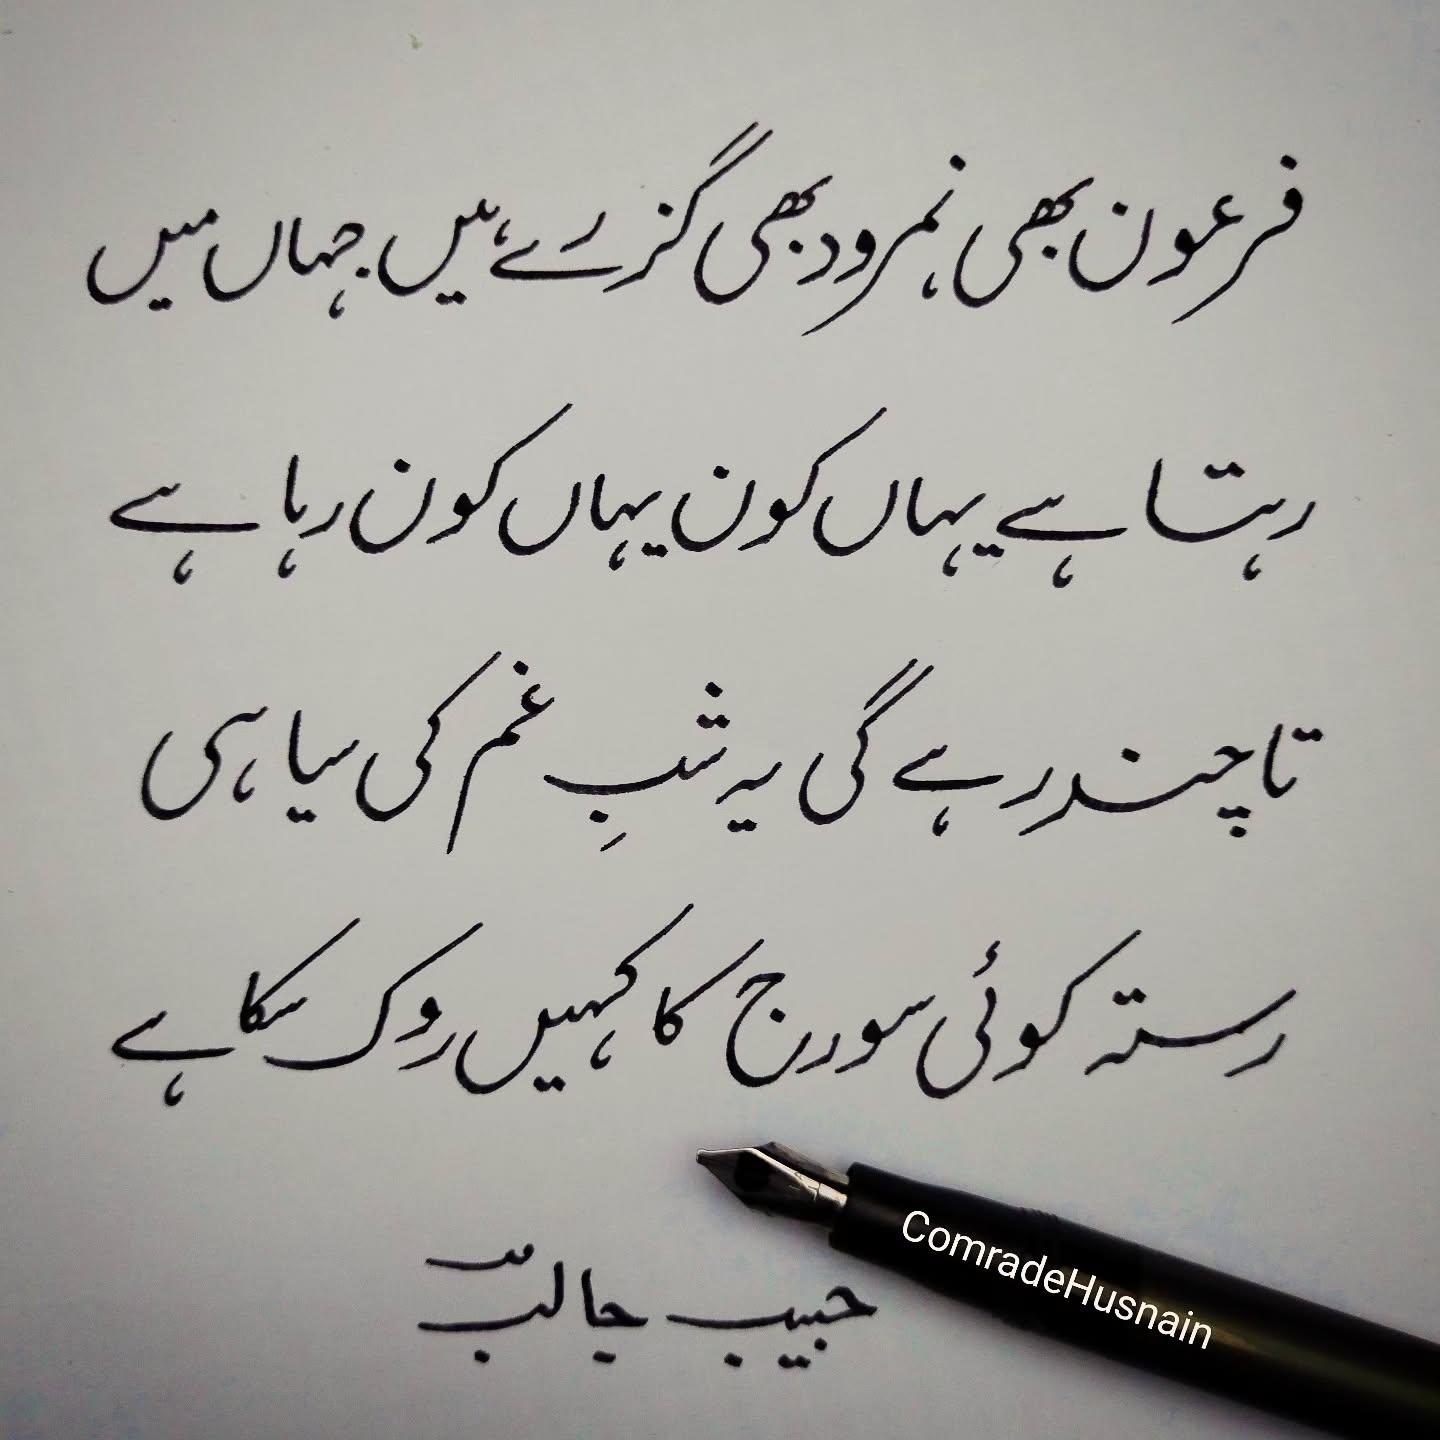 فرعون بھی نمرود بھی گزرے ہیں جہاں میں
رہتا ہے یہاں کون یہاں کون رہا ہے
تا چند رہے گی یہ شبِ غم کی سیاہی
رستہ کوئی سورج کا کہیں روک سکا ہے
حبیب جالب
ComradeHusnain